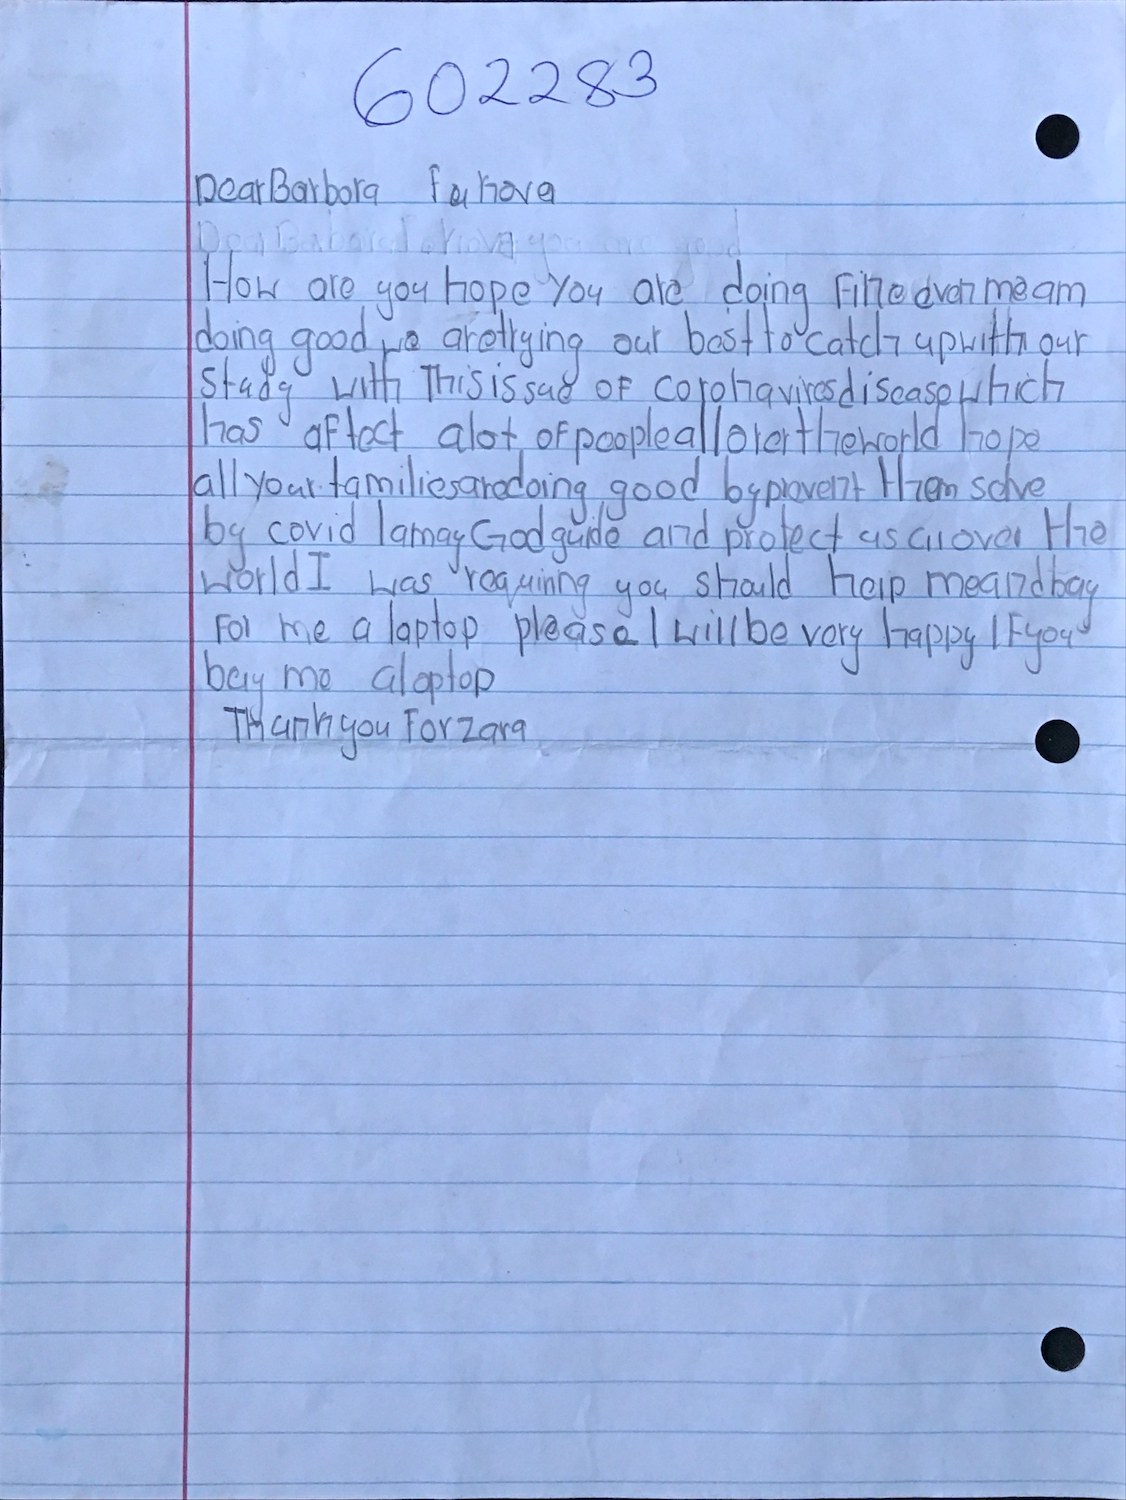 602283
Dear Barbora Fakova
How are you hope you are doing Fine even me am
doing good we are trying our best to catch up with our
study with This issue of corohavires disease which
has affect alot of people all over the world hope
all your families are doing good by prevent them selve
by covid 1a may God guide and protect us all over the
world I was requining you should help me and bay
For me a laptop please I will be very happy IF you
bay me a laptop
Thank you For zara